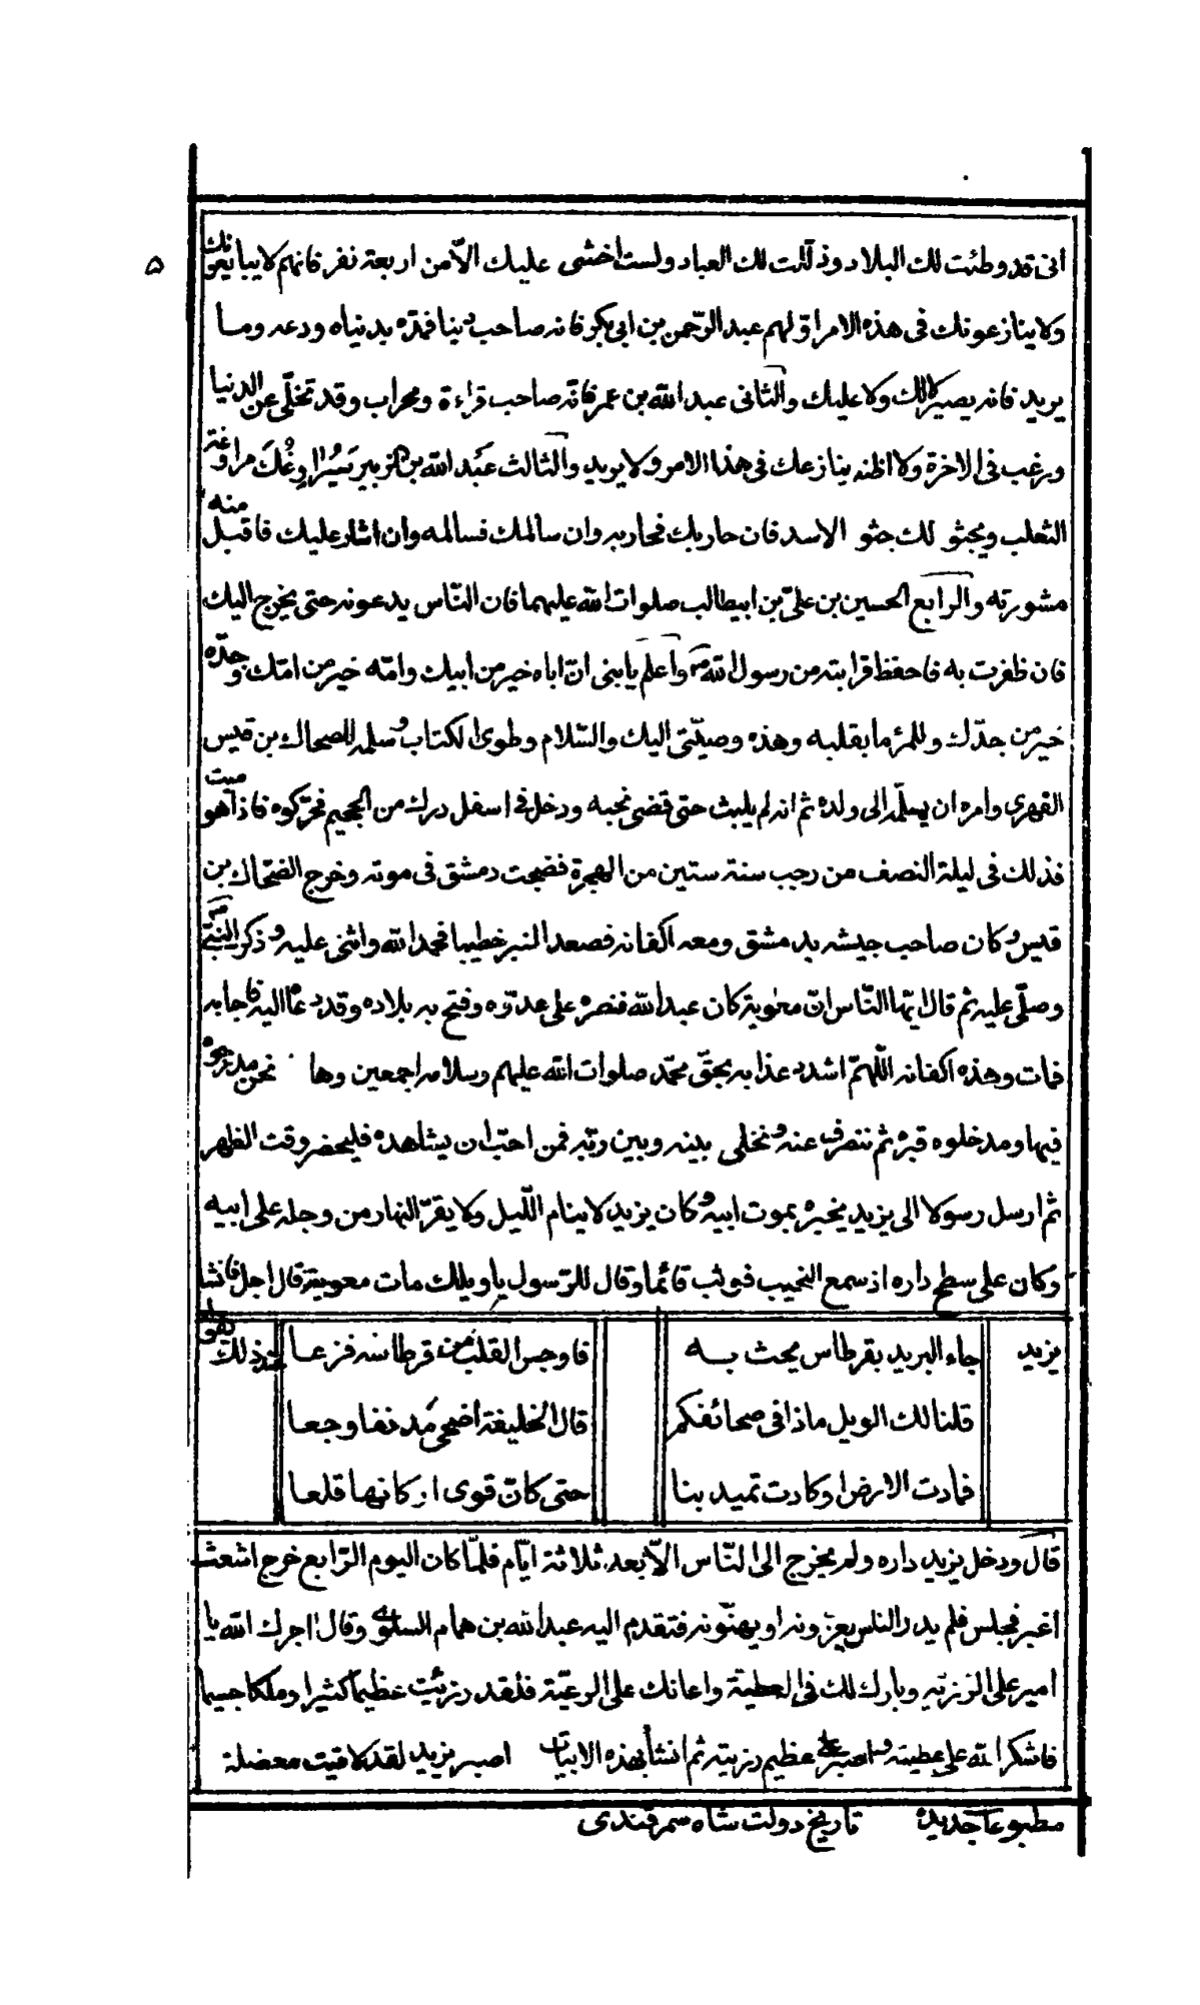 ۵
انی قد وطئت لك البلاد وذللت لك العباد ولست اخشی علیك الّا من اربعة نفر فانهم لا یبایعونك
ولا ینازعونك فی هذه الامر اوّلهم عبد الرّحمن بن ابی بكر فانه صاحب دنیا فمدّه بدنیاه ودعه وما
یرید فانه یصیر لا لك ولا علیك والثانی عبد الله بن عمر فانّه صاحب قراءة ومحراب وقد تخلّی عن الدنیا
ورغب فی الاخرة ولا اظنه ینازعك فی هذا الامر ولا یرید والثالث عبد الله بن الزبیر یراوغك مراوغة
الثعلب ویجثو لك جثو الاسد فان حاربك فحاربه وان سالمك فسالمه وان اشار علیك فاقبل منه
مشورته والرابع الحسین بن علیّ بن ابیطالب صلوات الله علیهما فان النّاس یدعونه حتی یخرج الیك
فان ظفرت به فاحفظ قرابته من رسول الله ص واعلم یا بنی انّ اباه خیر من ابیك وامّه خیر من امّك وجدّه
خیر من جدّك وللمرء ما بقلبه وهذه وصیّتی الیك والسّلام وطوی الكتاب وسلمه للضحاك بن قیس
الفهری وامره ان یسلّمه الی ولده ثم انه لم یلبث حتی قضی نحبه ودخل فی اسفل درك من الجحیم فحرّكوه فاذا هو میت
فذلك فی لیلة النصف من رجب سنة ستین من الهجرة فضجت دمشق فی موته وخرج الضحّاك بن
قیس وكان صاحب جیشه بدمشق ومعه اكفانه فصعد المنبر خطیبا فحمد الله واثنی علیه وذكر النبیّ ص
وصلّی علیه ثم قال ایّها النّاس انّ معویة كان عبد الله فنصره علی عدوّه وفتح به بلاده وقد دعاه الیه فاجابه
فمات وهذه اكفانه اللّهمّ اشدد عذابه بحقّ محمّد صلوات الله علیهم وسلامه اجمعین وها نحن مدرجوه
فیها ومدخلوه قبره ثم ننصرف عنه ونخلی بینه وبین ربّه فمن احبّ ان یشاهده فلیحضر وقت الظهر
ثم ارسل رسولا الی یزید یخبره بموت ابیه وكان یزید لا ینام اللّیل ولا یقرّ النهار من وجله علی ابیه
وكان علی سطح داره اذ سمع النحیب فوثب قائما وقال للرّسول یا ویلك مات معویة قال اجل فانشا
یزید جاء البرید بقرطاس یحث به فاوجس القلب من قرطاسه فزعا عند ذلك یقول
قلنا لك الویل ماذا فی صحائفكم قال الخلیفة اضحی مدنفا وجعا
فمادت الارض او كادت تمید بنا حتی كانّ قوی اركانها قلعا
قال ودخل یزید داره ولم یخرج الی النّاس الّا بعد ثلاثة ایّام فلمّا كان الیوم الرّابع خرج اشعث
اغبر فجلس فلم یدر الناس یعزونه او یهنّونه فتقدم الیه عبد الله بن همام السلولی وقال اجرك الله یا
امیر علی الرزیّه وبارك لك فی العطیة واعانك علی الرعیّة فلقد رزئت عظیما كثیرا وملكا جسیما
فاشكر الله علی عطیته واصبر علی عظیم رزیته ثم انشأ بهذه الابیات اصبر یزید لقد لاقیت معضلة
مطبوعات جدیده تاریخ دولت شاه سمرقندی